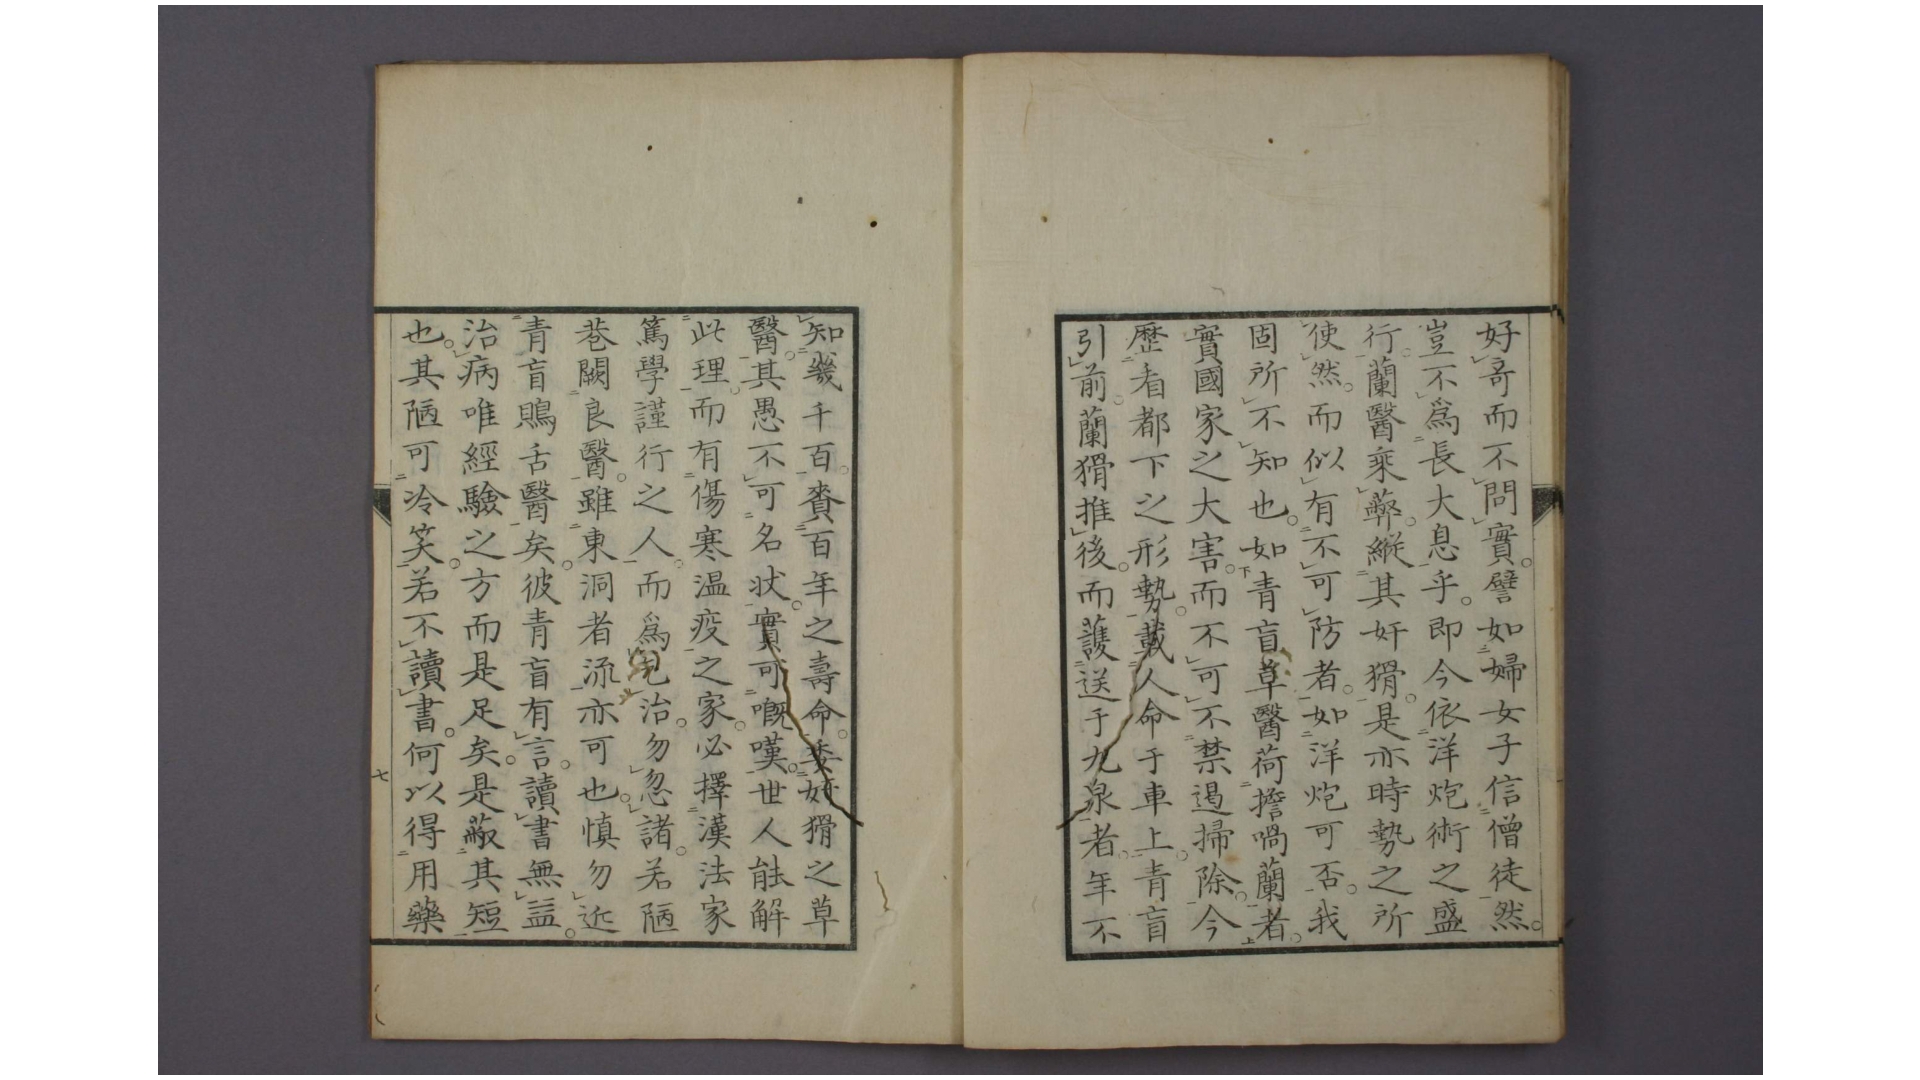 好哥而不問實。譬如婦女子信僧徒然。
豈不爲長大息乎。即今依洋炮術之盛
行。蘭醫乘蔽。縱其奸猾。是亦時勢之所
使然。而似有不可防者。如洋炮可否。我
固所不知也。如青盲草醫荷擔喎蘭者。
實國家之大害。而不可不禁遏掃除。今
歷看都下之形勢。載人命于車上。青盲
引前。蘭猾推後。而護送于九泉者。年不
知幾千百。賚百年之壽命。委奸猾之草
醫。其愚不可名状。實可嘅嘆。世人能解
此理。而有傷寒温疫之家。必擇漢法家
篤學謹行之人。而爲治。勿忽諸。若陋
巷闕良醫。雖東洞者流亦可也。慎勿近
青盲鴃舌醫矣。彼青盲有言。讀書無益。
治病唯經驗之方而是足矣。是蔽其短
也。其陋可冷笑。若不讀書。何以得用藥
七